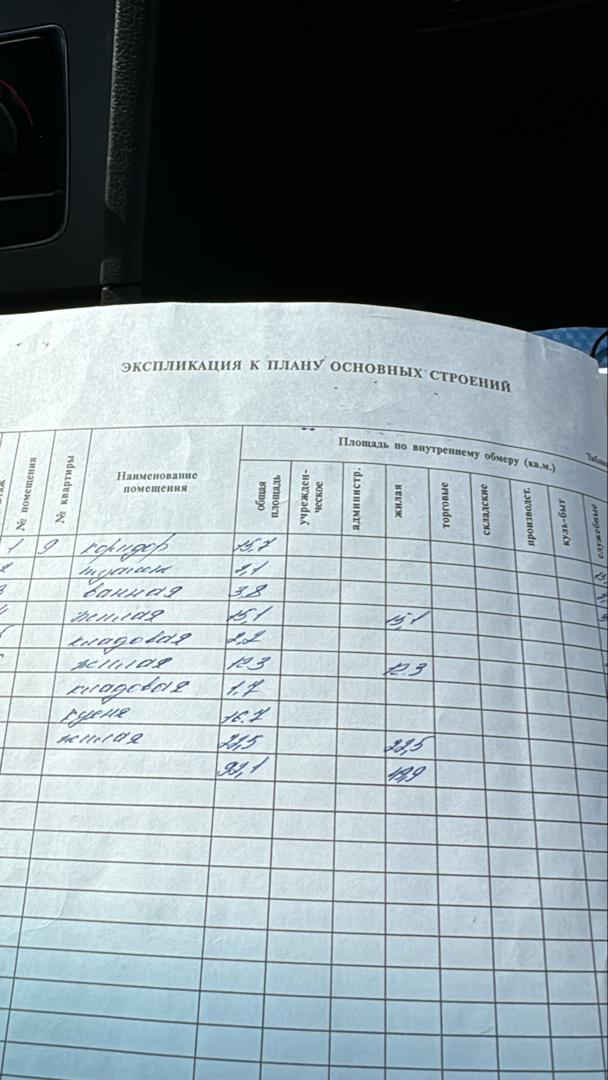 ЭКСПЛИКАЦИЯ К ПЛАНУ ОСНОВНЫХ СТРОЕНИЙ
№ помещения № квартиры Наименование помещения Площадь по внутреннему обмеру (кв.м.)
общая площадь учрежден-ческое администр. жилая торговые складские производст. куль-быт служебные
1 9 коридор 15,7
туалет 2,1
ванная 3,8
жилая 15,1 15,1
кладовая 2,2
жилая 12.3 12.3
кладовая 1.7
кухня 16.7
жилая 22,5 22,5
92,1 49,9